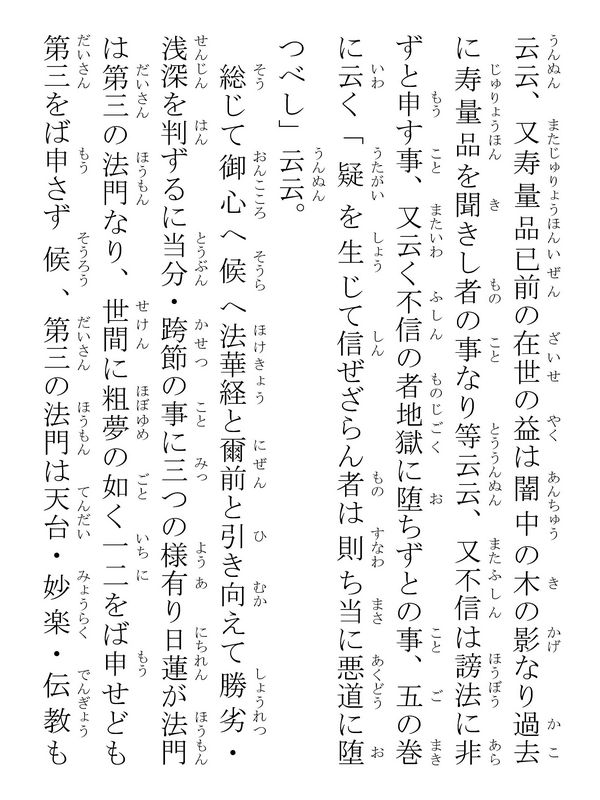 云云、又寿量品已前の在世の益は闇中の木の影なり過去
に寿量品を聞きし者の事なり等云云、又不信は謗法に非
ずと申す事、又云く不信の者地獄に堕ちずとの事、五の巻
に云く「疑を生じて信ぜざらん者は則ち当に悪道に堕
つべし」云云。
総じて御心へ候へ法華経と爾前と引き向えて勝劣・
浅深を判ずるに当分・跨節の事に三つの様有り日蓮が法門
は第三の法門なり、世間に粗夢の如く一二をば申せども
第三をば申さず候、第三の法門は天台・妙楽・伝教も